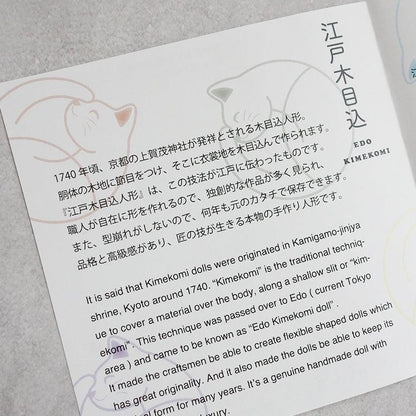 江戸木目込
EDO
KIMEKOMI
1740年頃、京都の上賀茂神社が発祥とされる木目込人形。
胴体の木地に節目をつけ、そこに衣裳地を木目込んで作られます。
『江戸木目込人形』は、この技法が江戸に伝わったものです。
職人が自在に形を作れるので、独創的な作品が多く見られ、
また、型崩れがしないので、何年も元のカタチで保存できます。
品格と高級感があり、匠の技が生きる本物の手作り人形です。
It is said that Kimekomi dolls were originated in Kamigamo-jinjya
shrine, Kyoto around 1740. "Kimekomi" is the traditional techniq-
ue to cover a material over the body, along a shallow slit or "kim-
ekomi". This technique was passed over to Edo ( current Tokyo
area ) and came to be known as "Edo Kimekomi doll" .
It made the craftsmen be able to create flexible shaped dolls which
has great originality. And it also made the dolls be able to keep its
form for many years. It's a genuine handmade doll with
luxury.